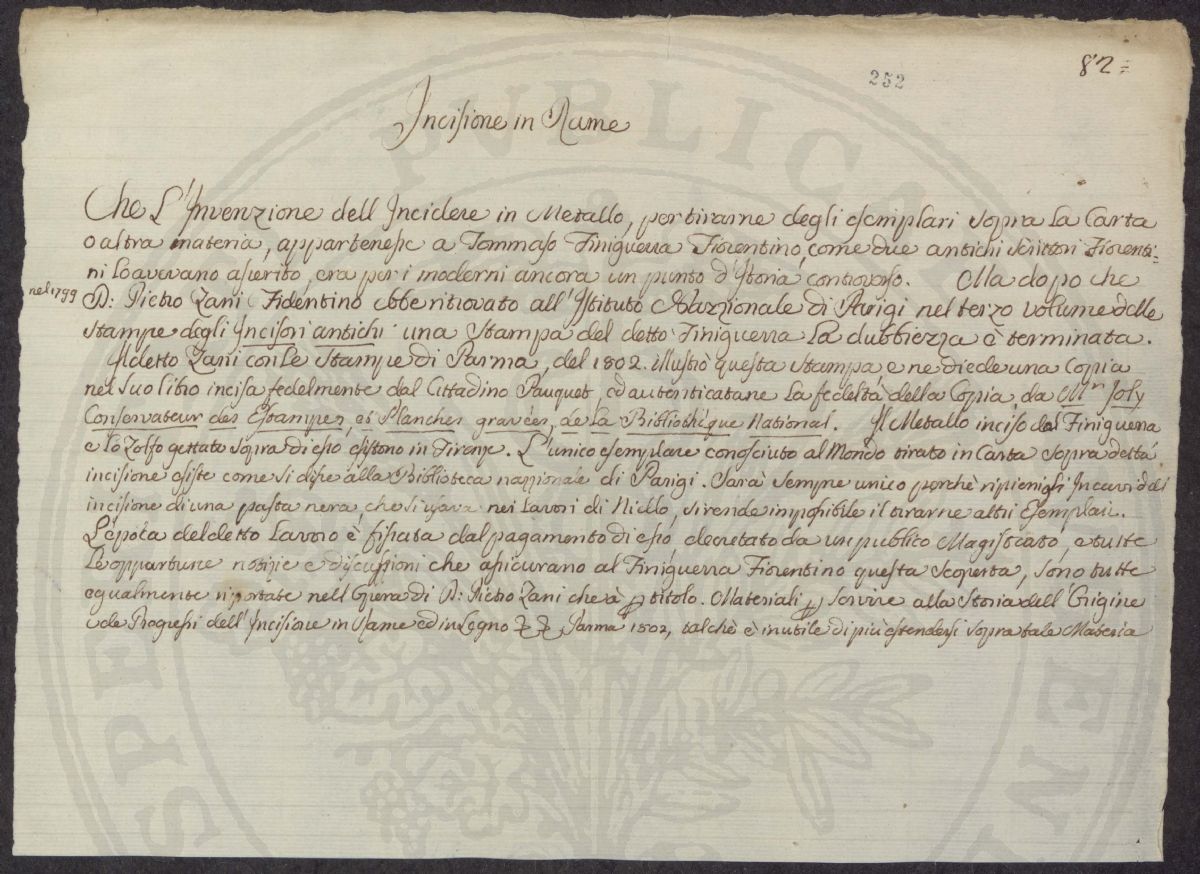 252
82=
Incisione in Rame
Che L'Invenzione dell Incidere in Metallo, per tirarne degli esemplari sopra La Carta
o altra materia, appartenesse a Tommaso Finiguerra Fiorentino, come due antichi scrittori Fiorenti=
ni Lo avevano asserito, era per i moderni ancora un punto d'Istoria controverso. Ma dopo che
nel 1799 D: Pietro Zani Fidentino ebbe ritrovato all'Istituto Nazzionale di Parigi nel terzo volume delle
Stampe degli Incisori antichi una Stampa del detto Finiguerra La dubbiezza è terminata.
Il detto Zani con Le Stampe di Parma, del 1802. illustrò questa stampa e ne diede una Copia
nel suo libro incisa fedelmente dal Cittadino Pauquet, ed autenticatane La fedeltà della Copia, da Mr. Joly
Conservateur des Estampes, et Planches gravées, de La Bibliothéque National. Il Metallo inciso dal Finiguerra
e lo Zolfo gettato sopra di esso esistono in Firenze. L'unico esemplare conosciuto al Mondo tirato in Carta sopra detta
incisione esiste come si disse alla Biblioteca nazzionale di Parigi. Sarà sempre unico perchè ripieni gli Incavi del
incisione di una pasta nera, che si usava nei Lavori di Niello, si rende impossibile il tirarne altri Esemplari.
L'época del detto Lavoro é fissata dal pagamento di esso decretato da un pubblico Magistrato, e tutte
Le opportune notizie e discussioni che assicurano al Finiguerra Fiorentino questa scoperta, sono tutte
egualmente riportate nell'Opera di D: Pietro Zani che à per titolo. Materiali per servire alla Storia dell'Origine
e de Progressi dell'Incisione in Rame ed in Legno Parma 1802, talchè è inutile di più estendersi sopra tale Materia
PUBLICAE